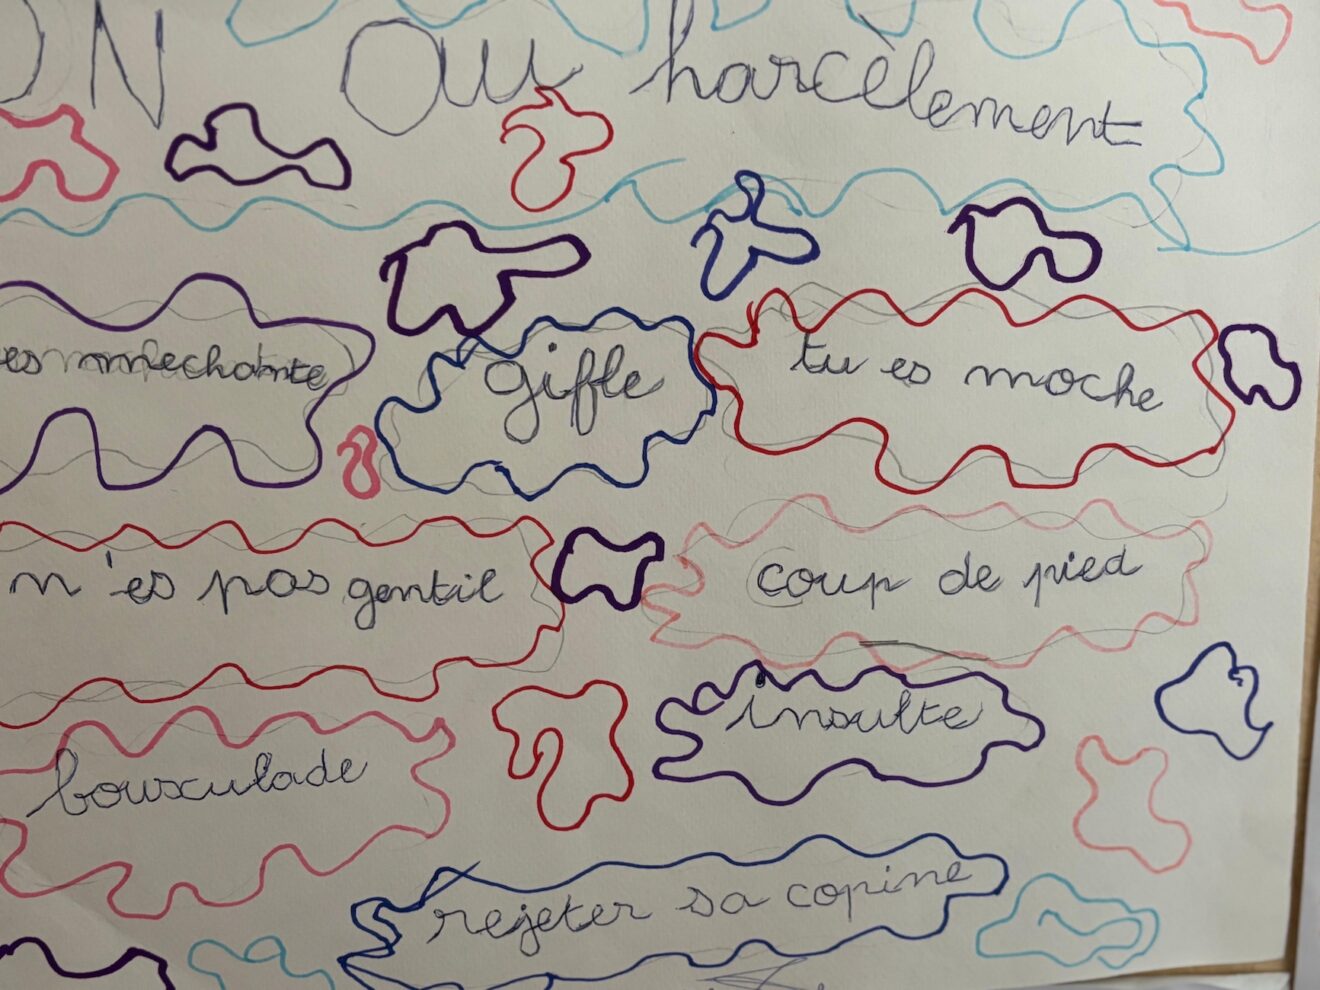 ON au harcèlement
es méchante
gifle
tu es moche
n'es pas gentil
coup de pied
bousculade
insulte
rejeter sa copine